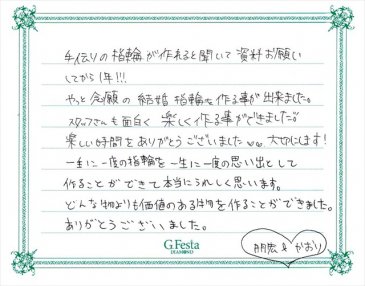 手伝りの指輪が作れると聞いて資料お願い
してから1年!!!
やっと念願の結婚指輪を作る事が出来ました。
スタッフさんも面白く楽しく作る事ができました♡
楽しい時間をありがとうございました♡♡大切にします!
一生に一度の指輪を一生に一度の思い出として
作ることができて本当にうれしく思います。
どんな物よりも価値のある物を作ることができました。
ありがとうございました。
G.Festa
DIAMOND
朋宏 & かおり